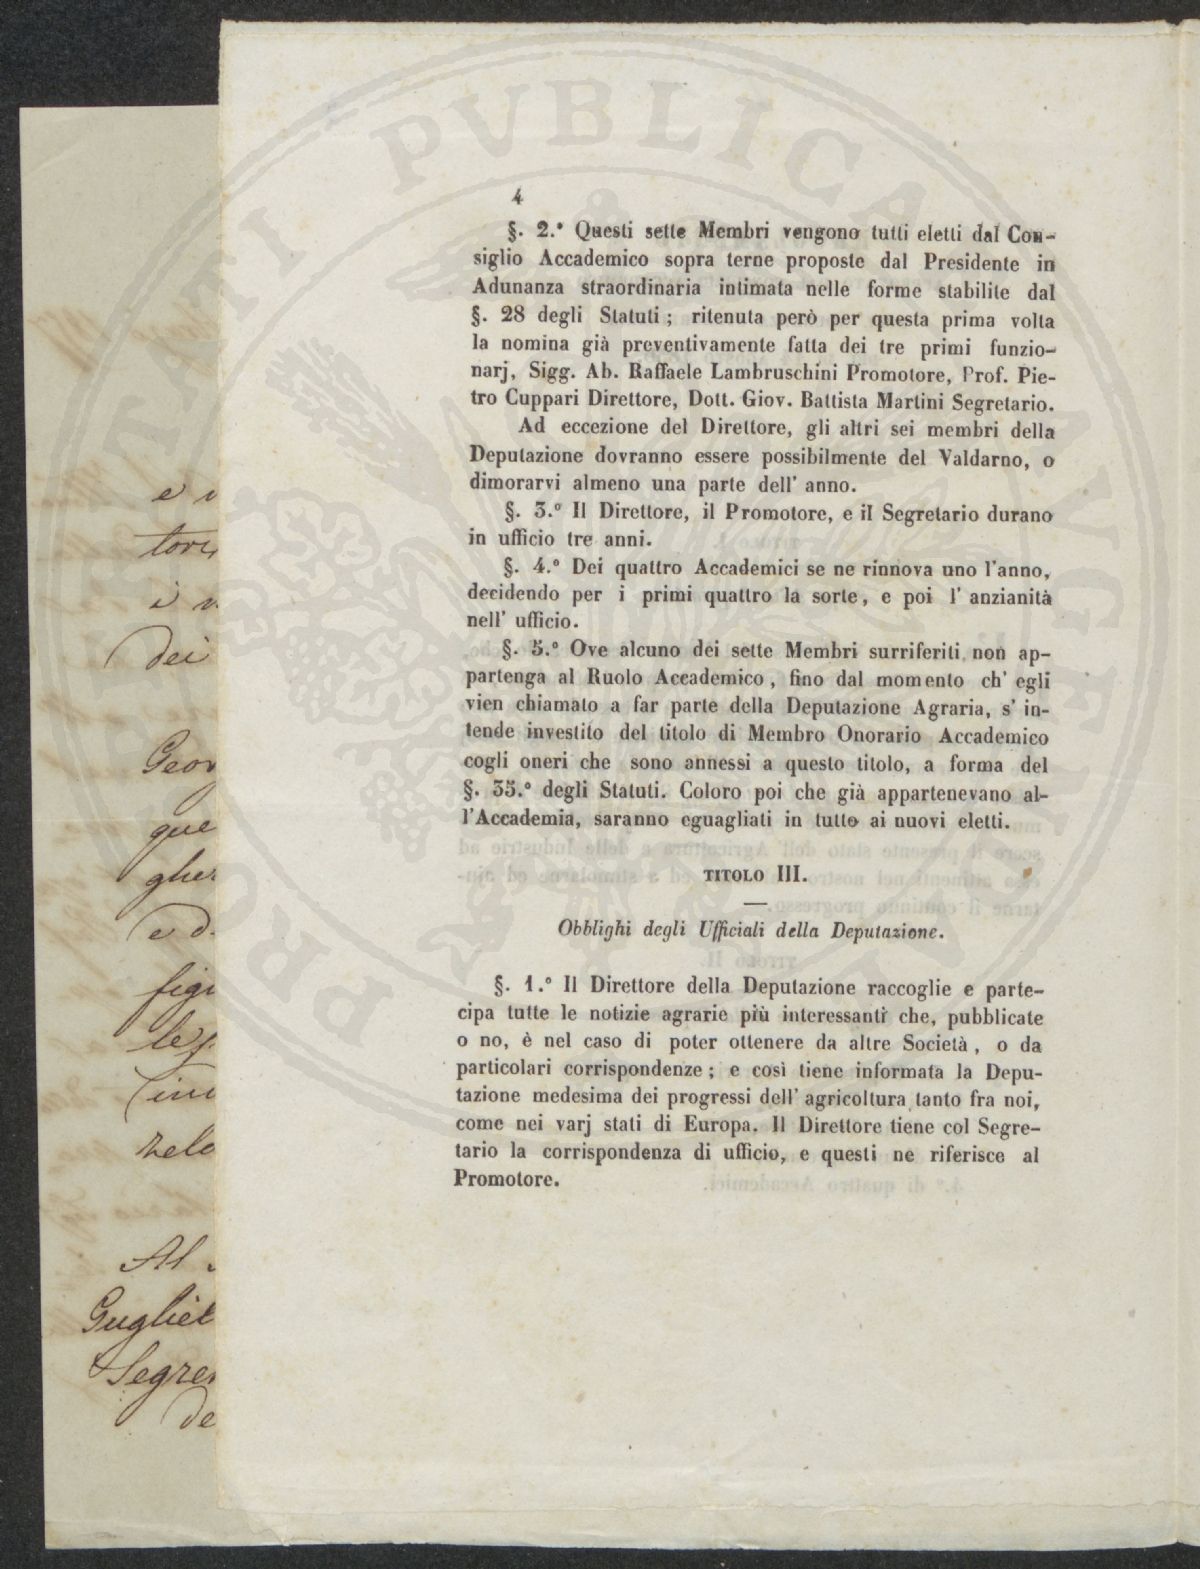 4
§. 2.° Questi sette Membri vengono tutti eletti dal Con-
siglio Accademico sopra terne proposte dal Presidente in
Adunanza straordinaria intimata nelle forme stabilite dal
§. 28 degli Statuti ; ritenuta però per questa prima volta
la nomina già preventivamente fatta dei tre primi funzio-
narj, Sigg. Ab. Raffaele Lambruschini Promotore, Prof. Pie-
tro Cuppari Direttore, Dott. Giov. Battista Martini Segretario.
Ad eccezione del Direttore, gli altri sei membri della
Deputazione dovranno essere possibilmente del Valdarno, o
dimorarvi almeno una parte dell' anno.
§. 3.° Il Direttore, il Promotore, e il Segretario durano
in ufficio tre anni.
§. 4.° Dei quattro Accademici se ne rinnova uno l'anno,
decidendo per i primi quattro la sorte, e poi l' anzianità
nell' ufficio.
§. 5.° Ove alcuno dei sette Membri surriferiti non ap-
partenga al Ruolo Accademico, fino dal momento ch' egli
vien chiamato a far parte della Deputazione Agraria, s' in-
tende investito del titolo di Membro Onorario Accademico
cogli oneri che sono annessi a questo titolo, a forma del
§. 35.° degli Statuti. Coloro poi che già appartenevano al-
l'Accademia, saranno eguagliati in tutto ai nuovi eletti.
TITOLO III.
Obblighi degli Ufficiali della Deputazione.
§. 1.° Il Direttore della Deputazione raccoglie e parte-
cipa tutte le notizie agrarie più interessanti che, pubblicate
o no, è nel caso di poter ottenere da altre Società, o da
particolari corrispondenze ; e così tiene informata la Depu-
tazione medesima dei progressi dell' agricoltura tanto fra noi,
come nei varj stati di Europa. Il Direttore tiene col Segre-
tario la corrispondenza di ufficio, e questi ne riferisce al
Promotore.
dei
que
Al
de
PROSPERITATI PVBLICAE AVGENDAE